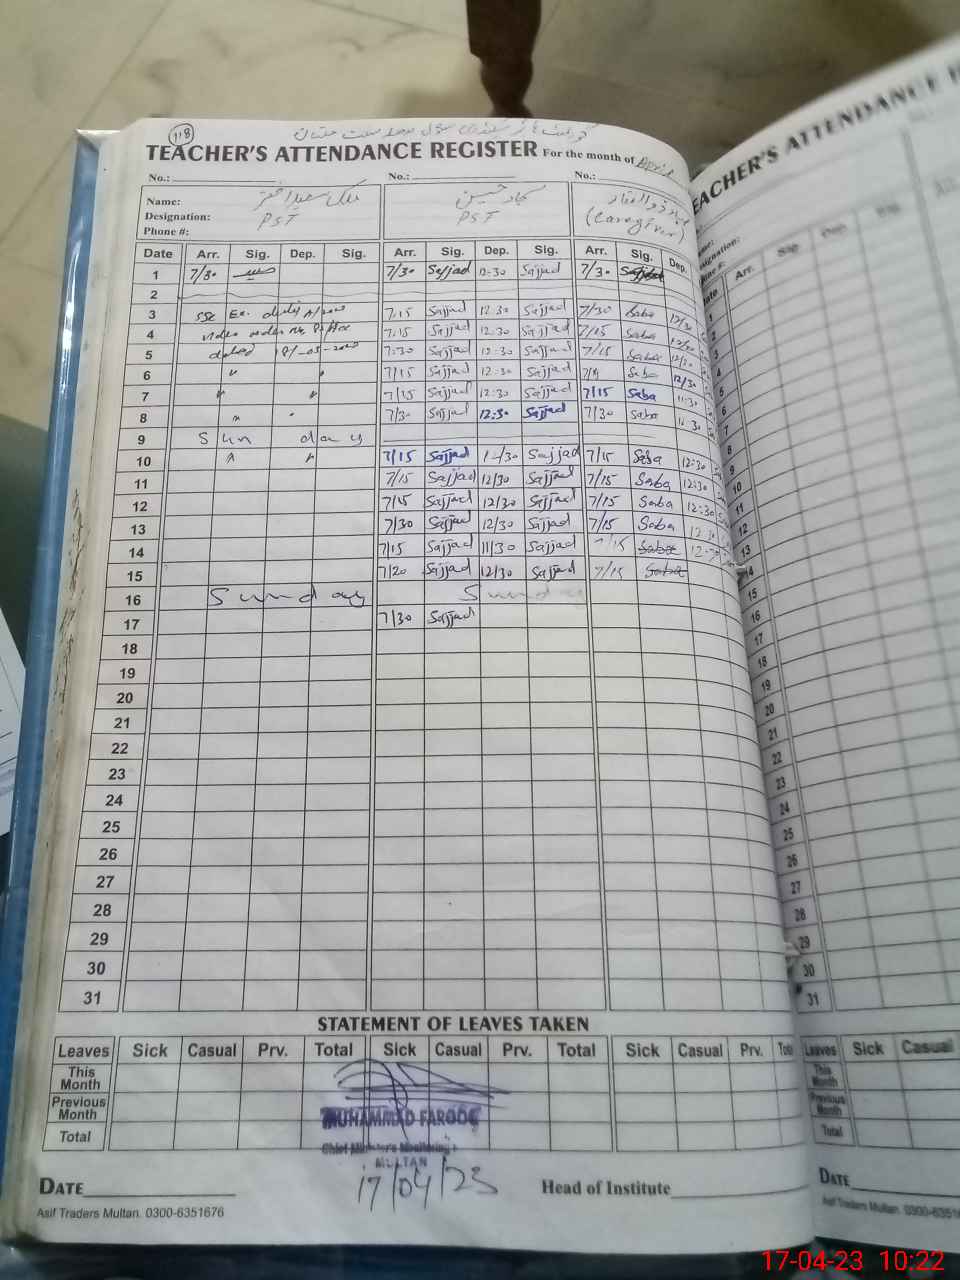 118
TEACHER'S ATTENDANCE REGISTER For the month of April
No.: No.: No.:
Name: سجاد حسین
Designation: PST PST (Caregiver)
Phone #:
Date Arr. Sig. Dep. Sig. Arr. Sig. Dep. Sig. Arr. Sig. Dep.
1 7/30 7/30 Sajjad 12:30 Sajjad 7/30
2
3 SSC Ex. duty 7:15 Sajjad 12:30 Sajjad 7/30 Saba 12/30
4 7:15 Sajjad 12:30 Sajjad 7/15 Saba 12/30
5 dated 7:30 Sajjad 12:30 Sajjad 7/15 Saba 12/30
6 " " 7/15 Sajjad 12:30 Sajjad Saba 12/30
7 " " 7/15 Sajjad 12:30 Sajjad 7/15 Saba 11:30
8 " 7/30 Sajjad 12:30 Sajjad 7/30 Saba 12:30
9 Sun day
10 " " 7/15 Sajjad 12/30 Sajjad 7/15 Saba 12:30
11 7/15 Sajjad 12/30 Sajjad 7/15 Saba 12:30
12 7/15 Sajjad 12/30 Sajjad 7/15 Saba 12:30
13 7/30 Sajjad 12/30 Sajjad 7/15 Saba 12:30
14 7/15 Sajjad 11/30 Sajjad 7/15 Saba
15 7/20 Sajjad 12/30 Sajjad 7/15 Saba
16 Sunday Sunday
17 7/30 Sajjad
18
19
20
21
22
23
24
25
26
27
28
29
30
31
STATEMENT OF LEAVES TAKEN
Leaves Sick Casual Prv. Total Sick Casual Prv. Total Sick Casual Prv.
This Month
Previous Month
Total
MUHAMMAD FAROOQ
Chief Minister's Monitoring
MULTAN
17/04/23
DATE Head of Institute
Asif Traders Multan. 0300-6351676
TEACHER'S ATTENDANCE
Arr. Sig. Dep. Sig.
1
2
3
4
5
6
7
8
9
10
11
12
13
14
15
16
17
18
19
20
21
22
23
24
25
26
27
28
29
30
31
Leaves Sick Casual
This Month
Previous Month
Total
DATE
Asif Traders Multan.
17-04-23 10:22